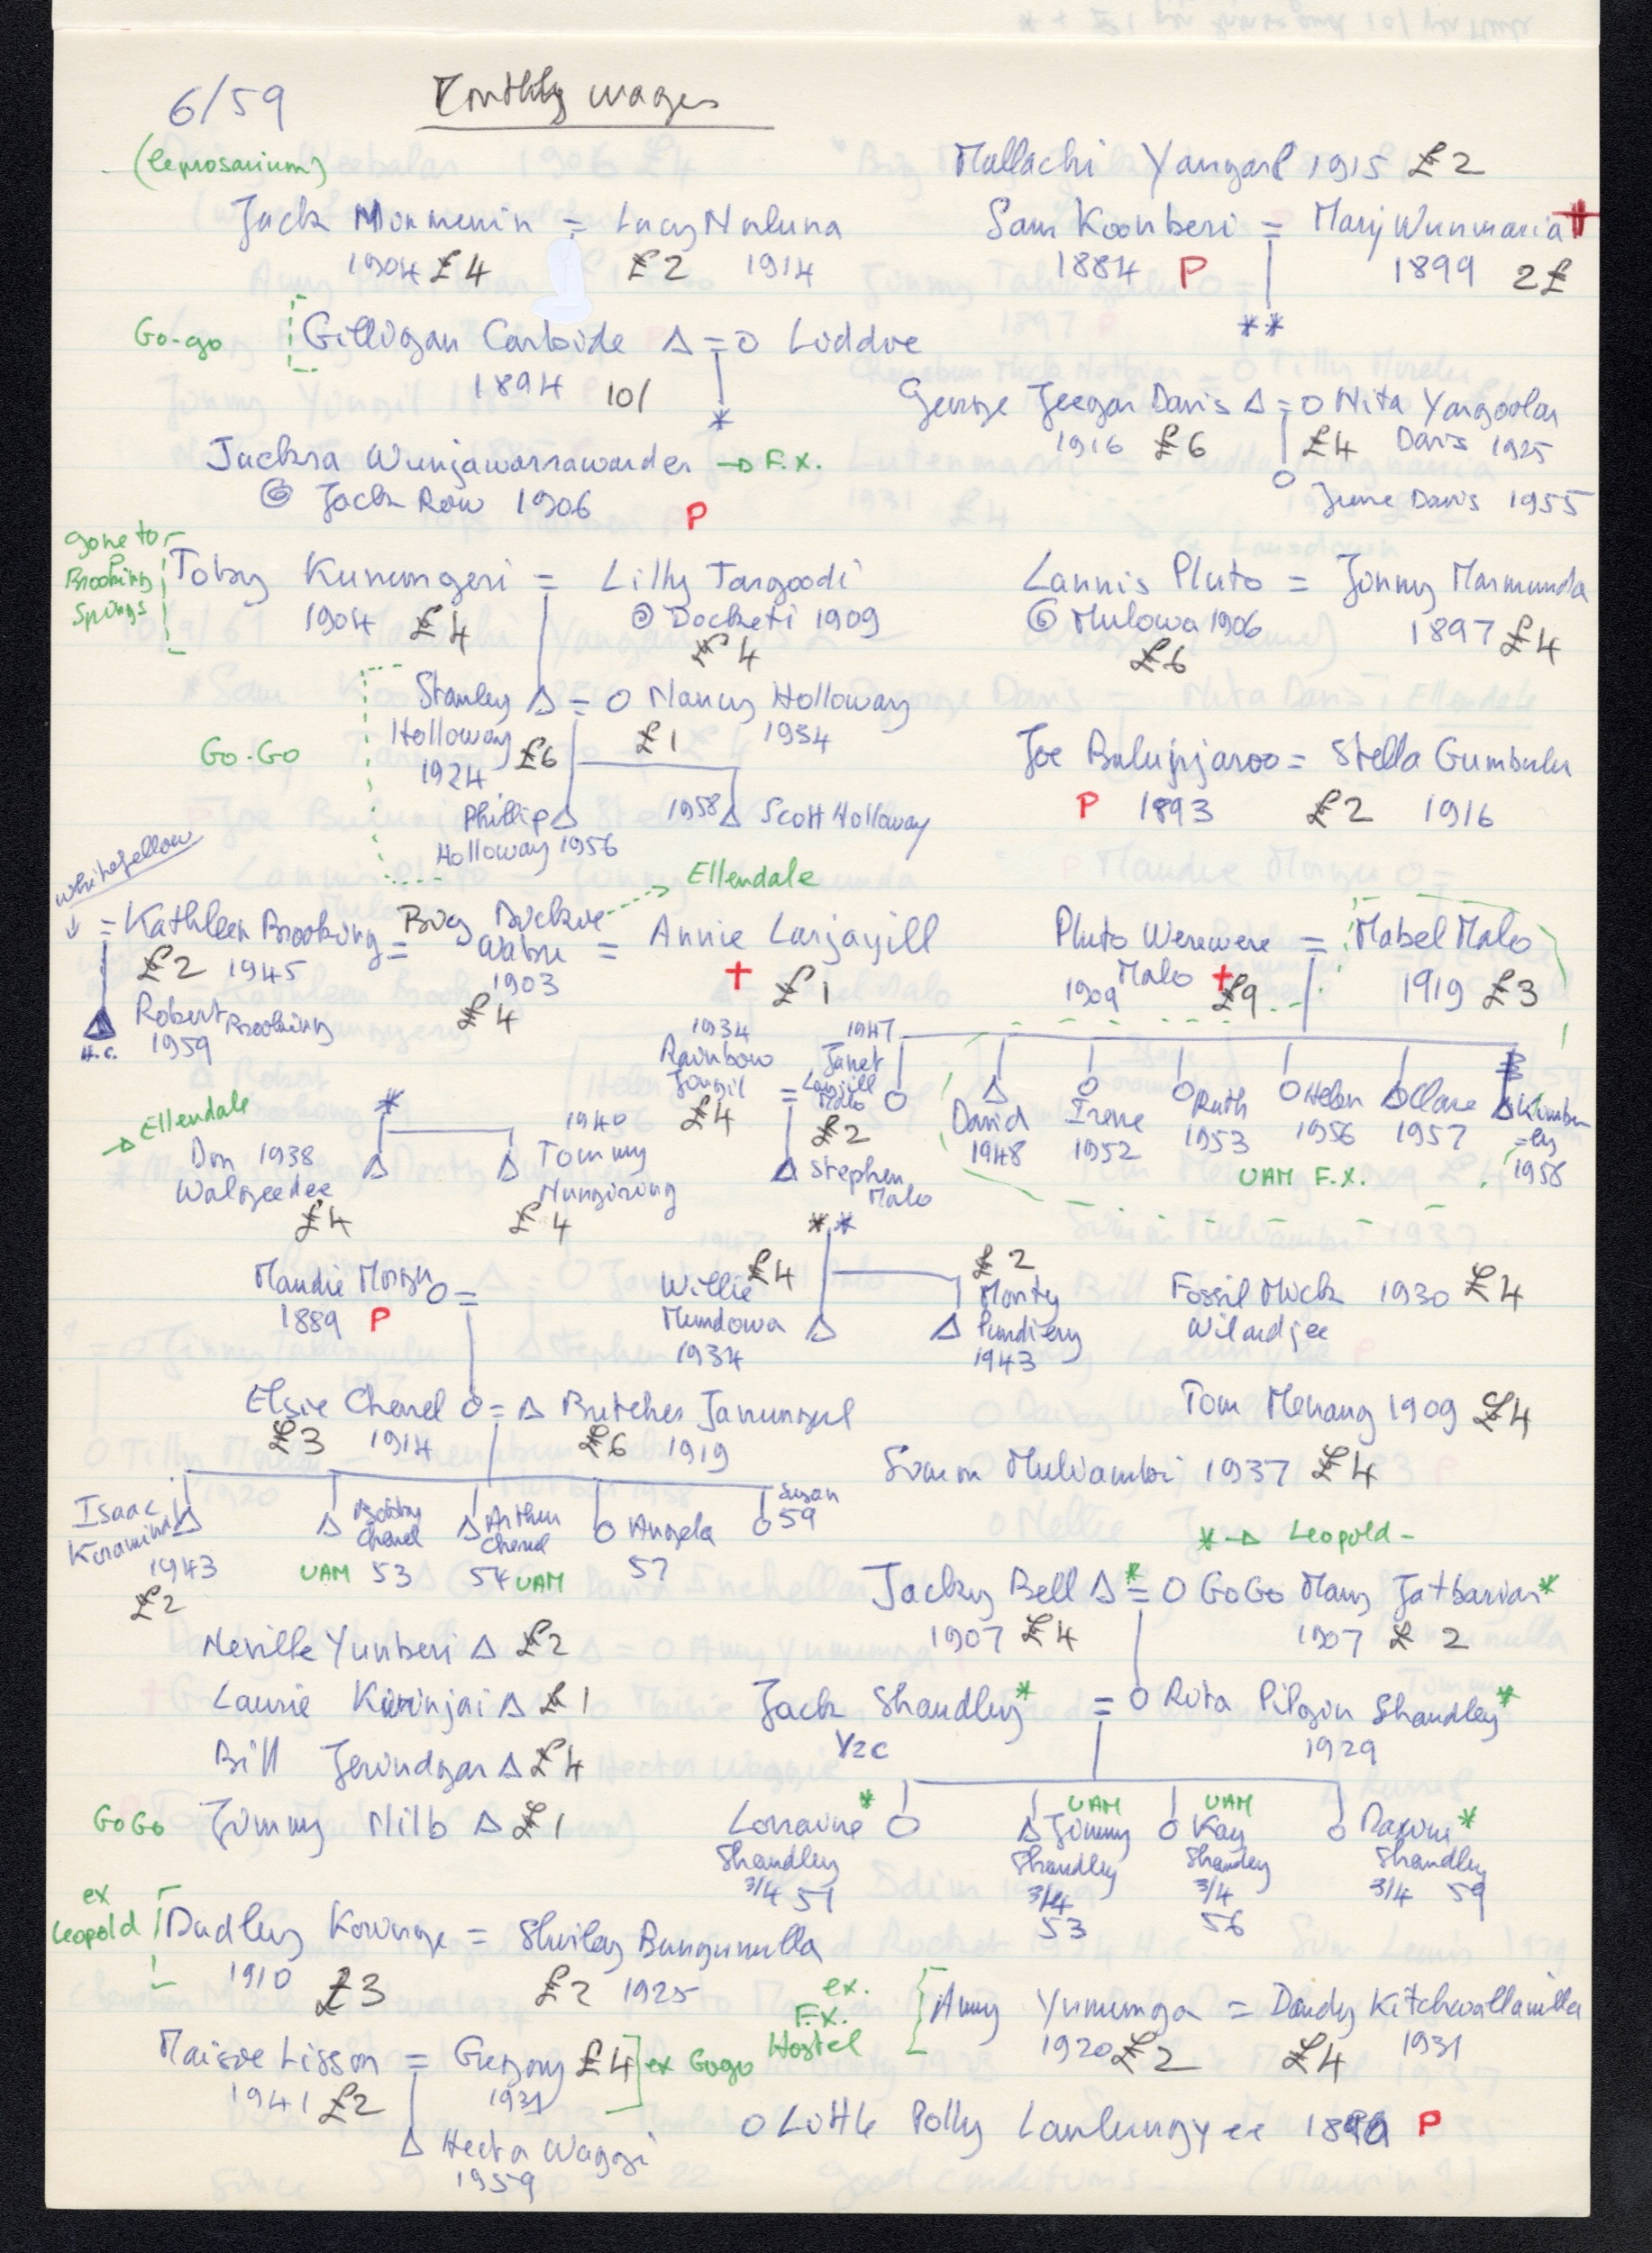 6/59 Monthly wages
(leprosarium)
Mallachi Yangarl 1915 £2
Jack Monmenin = Lucy Naluna
1904 £4 £2 1914
Sam Koonberi = Mary Wunmaria †
1884 P 1899 2£
**
Go-go Gilligan Carbide △ = O Liddie
1894 10/
*
George Jeegar Davis △ = O Nita Yangoolar
1916 £6 £4 Davis 1925
O June Davis 1955
Jackra Wunjawarrawarder → F.X.
@ Jack Row 1906 P
gone to
Brooking
Springs
Toby Kunumgeri = Lilly Targoodi
1904 £4 @ Docketi 1909
£4
Lannis Pluto = Jimmy Marmunda
@ Mulowa 1906 1897 £4
£6
Stanley △ = O Nancy Holloway
Holloway £6 £1 1934
1924
Go-Go
Phillip △ 1958 △ Scott Holloway
Holloway 1956
Joe Bulunjaroo = Stella Gumbulu
P 1893 £2 1916
whitefellow
↓ = Kathleen Brooking = Big Dickie = Annie Larjayill
Wabie
£2 1945 1903 † £1
£4
→ Ellendale
Robert Brooking
H.C. 1959
Pluto Werewere = Mabel Malo
1909 Malo † £9 1919 £3
1934 1947
Rainbow Janet
Jongil = Larjill
£4 Malo O
£2
△ Stephen
Malo
David
1948
Irene
1952
Ruth
1953
Helen
1956
Clare
1957
Kimber
=ley
1958
UAM F.X.
→ Ellendale
*
Don 1938 △
Walgeedee
£4
1940
△ Tommy
Nungining
£4
**
Willie £4
Mundowa △
1934
£2
△ Monty
Pundieny
1943
Maudie Morgu O =
1889 P
Fossil Mick 1930 £4
Wilandjee
Elsie Cherel O = △ Butcher Janungul
£3 1914 £6 1919
Tom Menang 1909 £4
Simon Mulvambi 1937 £4
Isaac △
Kiramina
1943
£2
△ Bobby
Cherel
UAM 53
△ Arthur
Cherel
54 UAM
O Angela
57
O Susan
59
* → Leopold -
Jacky Bell △ * = O GoGo Mary Jatbarian *
1907 £4 1907 £2
Neville Yunberi △ £2
Laurie Kirinjai △ £1
Bill Jerindgar △ £4
GoGo Jimmy Milb △ £1
Jack Shandley * = O Rita Pilgin Shandley *
1/2c 1929
Lorraine * O
Shandley
3/4 51
UAM
△ Jimmy
Shandley
3/4
53
UAM
O Kay
Shandley
3/4
56
O Maxine *
Shandley
3/4 59
ex
Leopold
Dudley Kowinge = Shirley Bungunulla
1910 £3 £2 1925
ex.
F.X.
Hostel
Amy Yumumga = Dandy Kitchwallamilla
1920 £2 £4 1931
Maisie Lisson = Gregory £4 ex Gogo
1941 £2 1931
△ Hecta Waggi
1959
O Little Polly Lanlungyee 1899 P